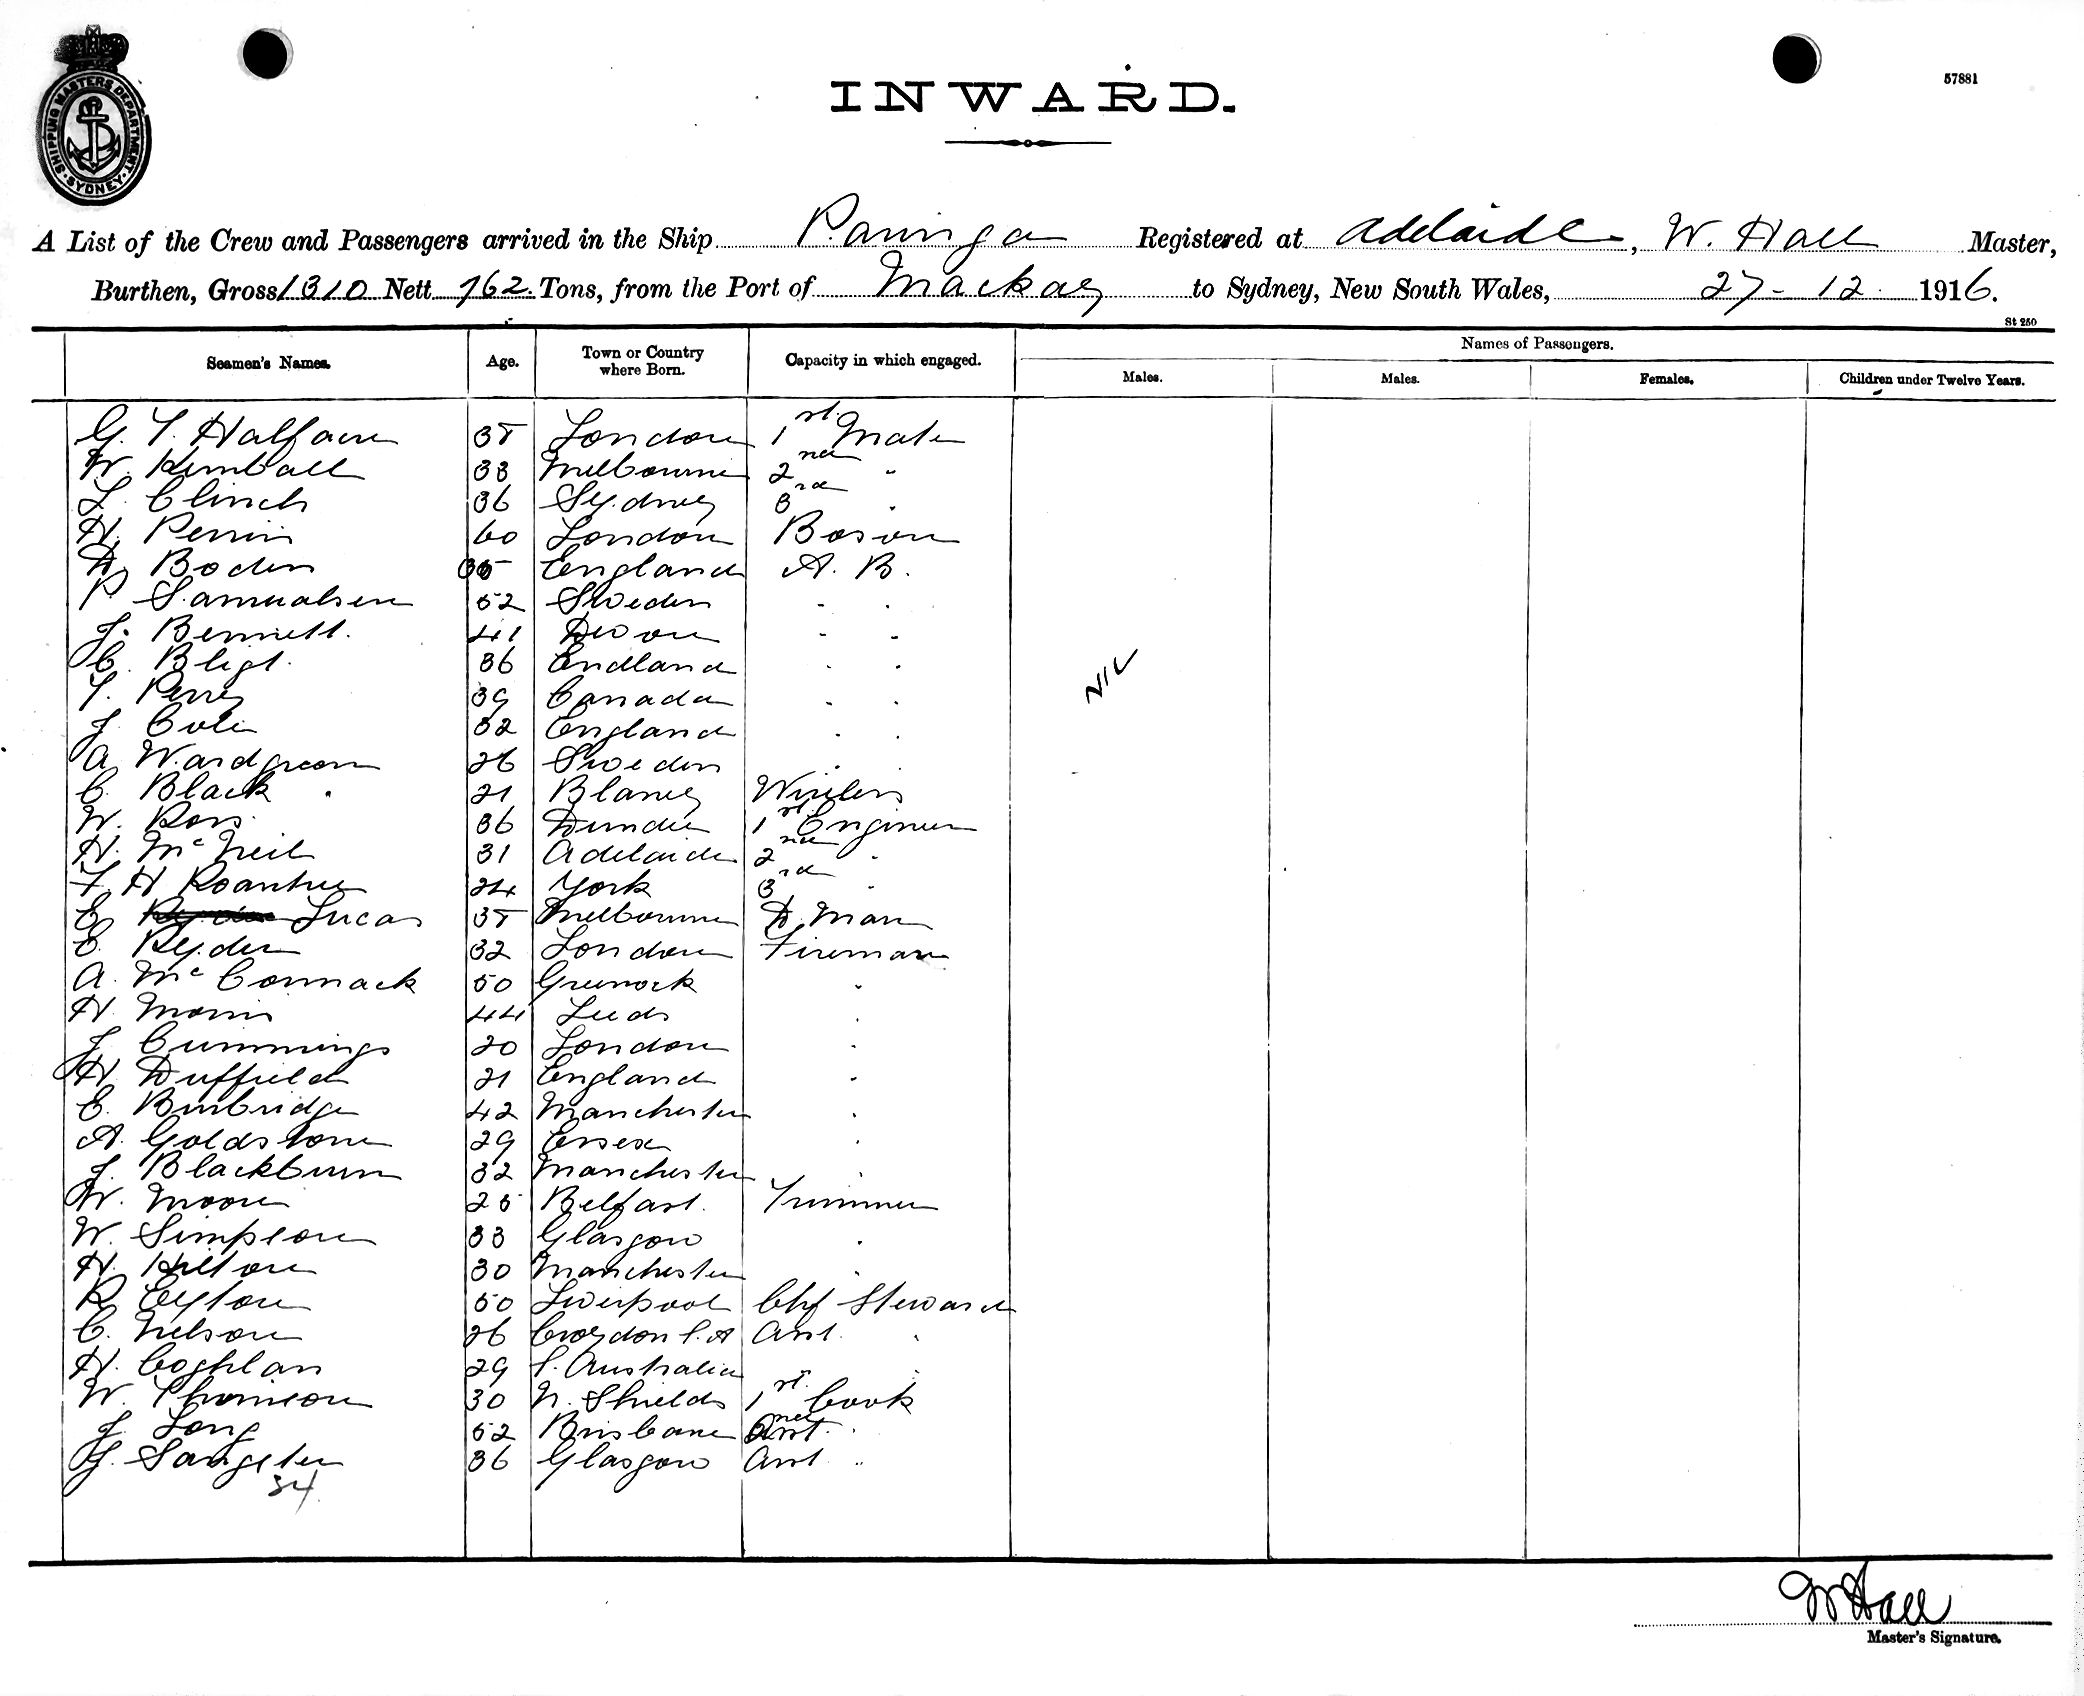 SHIPPING MASTERS DEPARTMENT SYDNEY
57881
INWARD.
A List of the Crew and Passengers arrived in the Ship Paringa Registered at Adelaide, W. Hall Master,
Burthen, Gross 1310 Nett 762 Tons, from the Port of Mackay to Sydney, New South Wales, 27-12. 1916.
St 250
Seamen's Names. Age. Town or Country where Born. Capacity in which engaged. Names of Passengers.
Males. Males. Females. Children under Twelve Years.
G. T. Halfacre 35 London 1st Mate
W. Kimball 33 Melbourne 2nd "
L. Clinch 36 Sydney 3rd "
H. Perrin 60 London Bosun
D. Boden 35 England A. B.
P. Samualsen 52 Sweden " "
J. Bennett. 41 Devon " "
C. Bligt. 36 Endland " "
T. Perry 39 Canada " "
J. Cole 32 England " "
A Wardgreen 26 Sweden " "
C. Black 21 Blaney Wireless
W. Ross. 36 Dundee 1st Engineer
H. McNeil 31 Adelaide 2nd "
F. H Roantree 24 York 3rd "
E. Lucas 35 Melbourne D. Man
E. Ryder 32 London Fireman
A. McCormack 50 Greenock "
H. Morris 44 Leeds "
J Cummings 20 London "
H. Duffield 21 England "
E. Burbridge 42 Manchester "
A. Goldstone 29 Essex "
J. Blackburn 32 Manchester "
W. Moore 25 Belfast. Trimmer
W. Simpson 33 Glasgow "
H. Hilton 30 Manchester "
R Eyton 50 Liverpool Chf Steward
C. Nelson 26 Croydon S. A Asst. "
H. Coghlan 29 S. Australia "
W. Thomson 30 N. Shields 1st Cook
J. Long 52 Brisbane 2nd "
G. Sangster 36 Glasgow Asst "
34
NIL
W Hall
Master's Signature.